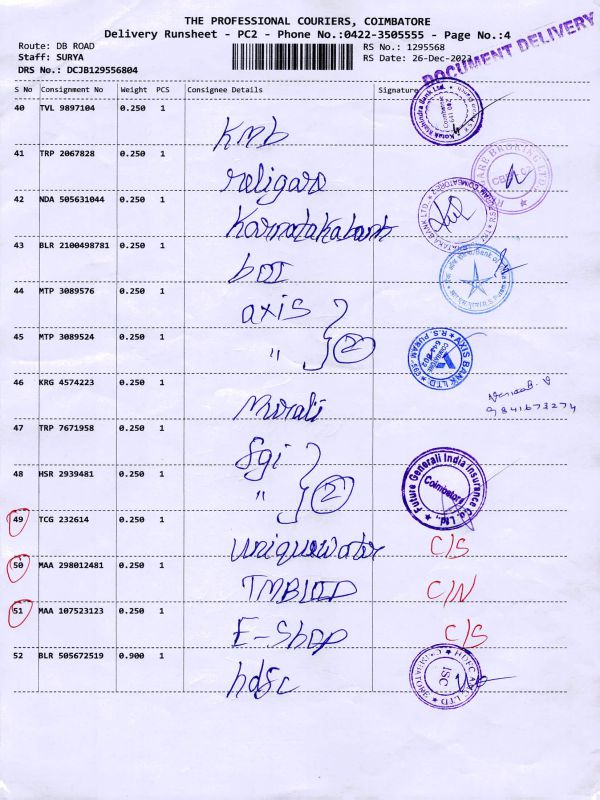 THE PROFESSIONAL COURIERS, COIMBATORE
Delivery Runsheet - PC2 - Phone No.:0422-3505555 - Page No.:4
Route: DB ROAD
Staff: SURYA
DRS No.: DCJB129556804
RS No.: 1295568
RS Date: 26-Dec-2023
DOCUMENT DELIVERY
S No Consignment No Weight PCS Consignee Details Signature
40 TVL 9897104 0.250 1 KMB
Kotak Mahindra Bank Ltd. Coimbatore
41 TRP 2067828 0.250 1 religare
42 NDA 505631044 0.250 1 Karnataka bank
43 BLR 2100498781 0.250 1 BOI
44 MTP 3089576 0.250 1 axis
45 MTP 3089524 0.250 1 " 2
AXIS BANK LTD. R.S. PURAM, COIMBATORE 641 002
46 KRG 4574223 0.250 1 Murali
9841673274
47 TRP 7671958 0.250 1 fgi
48 HSR 2939481 0.250 1 " 2
Future Generali India Insurance Co. Ltd., Coimbatore
49 TCG 232614 0.250 1 uniquewater C/S
50 MAA 298012481 0.250 1 TMBLTD C/N
51 MAA 107523123 0.250 1 E-Shop C/S
52 BLR 505672519 0.900 1 hdfc